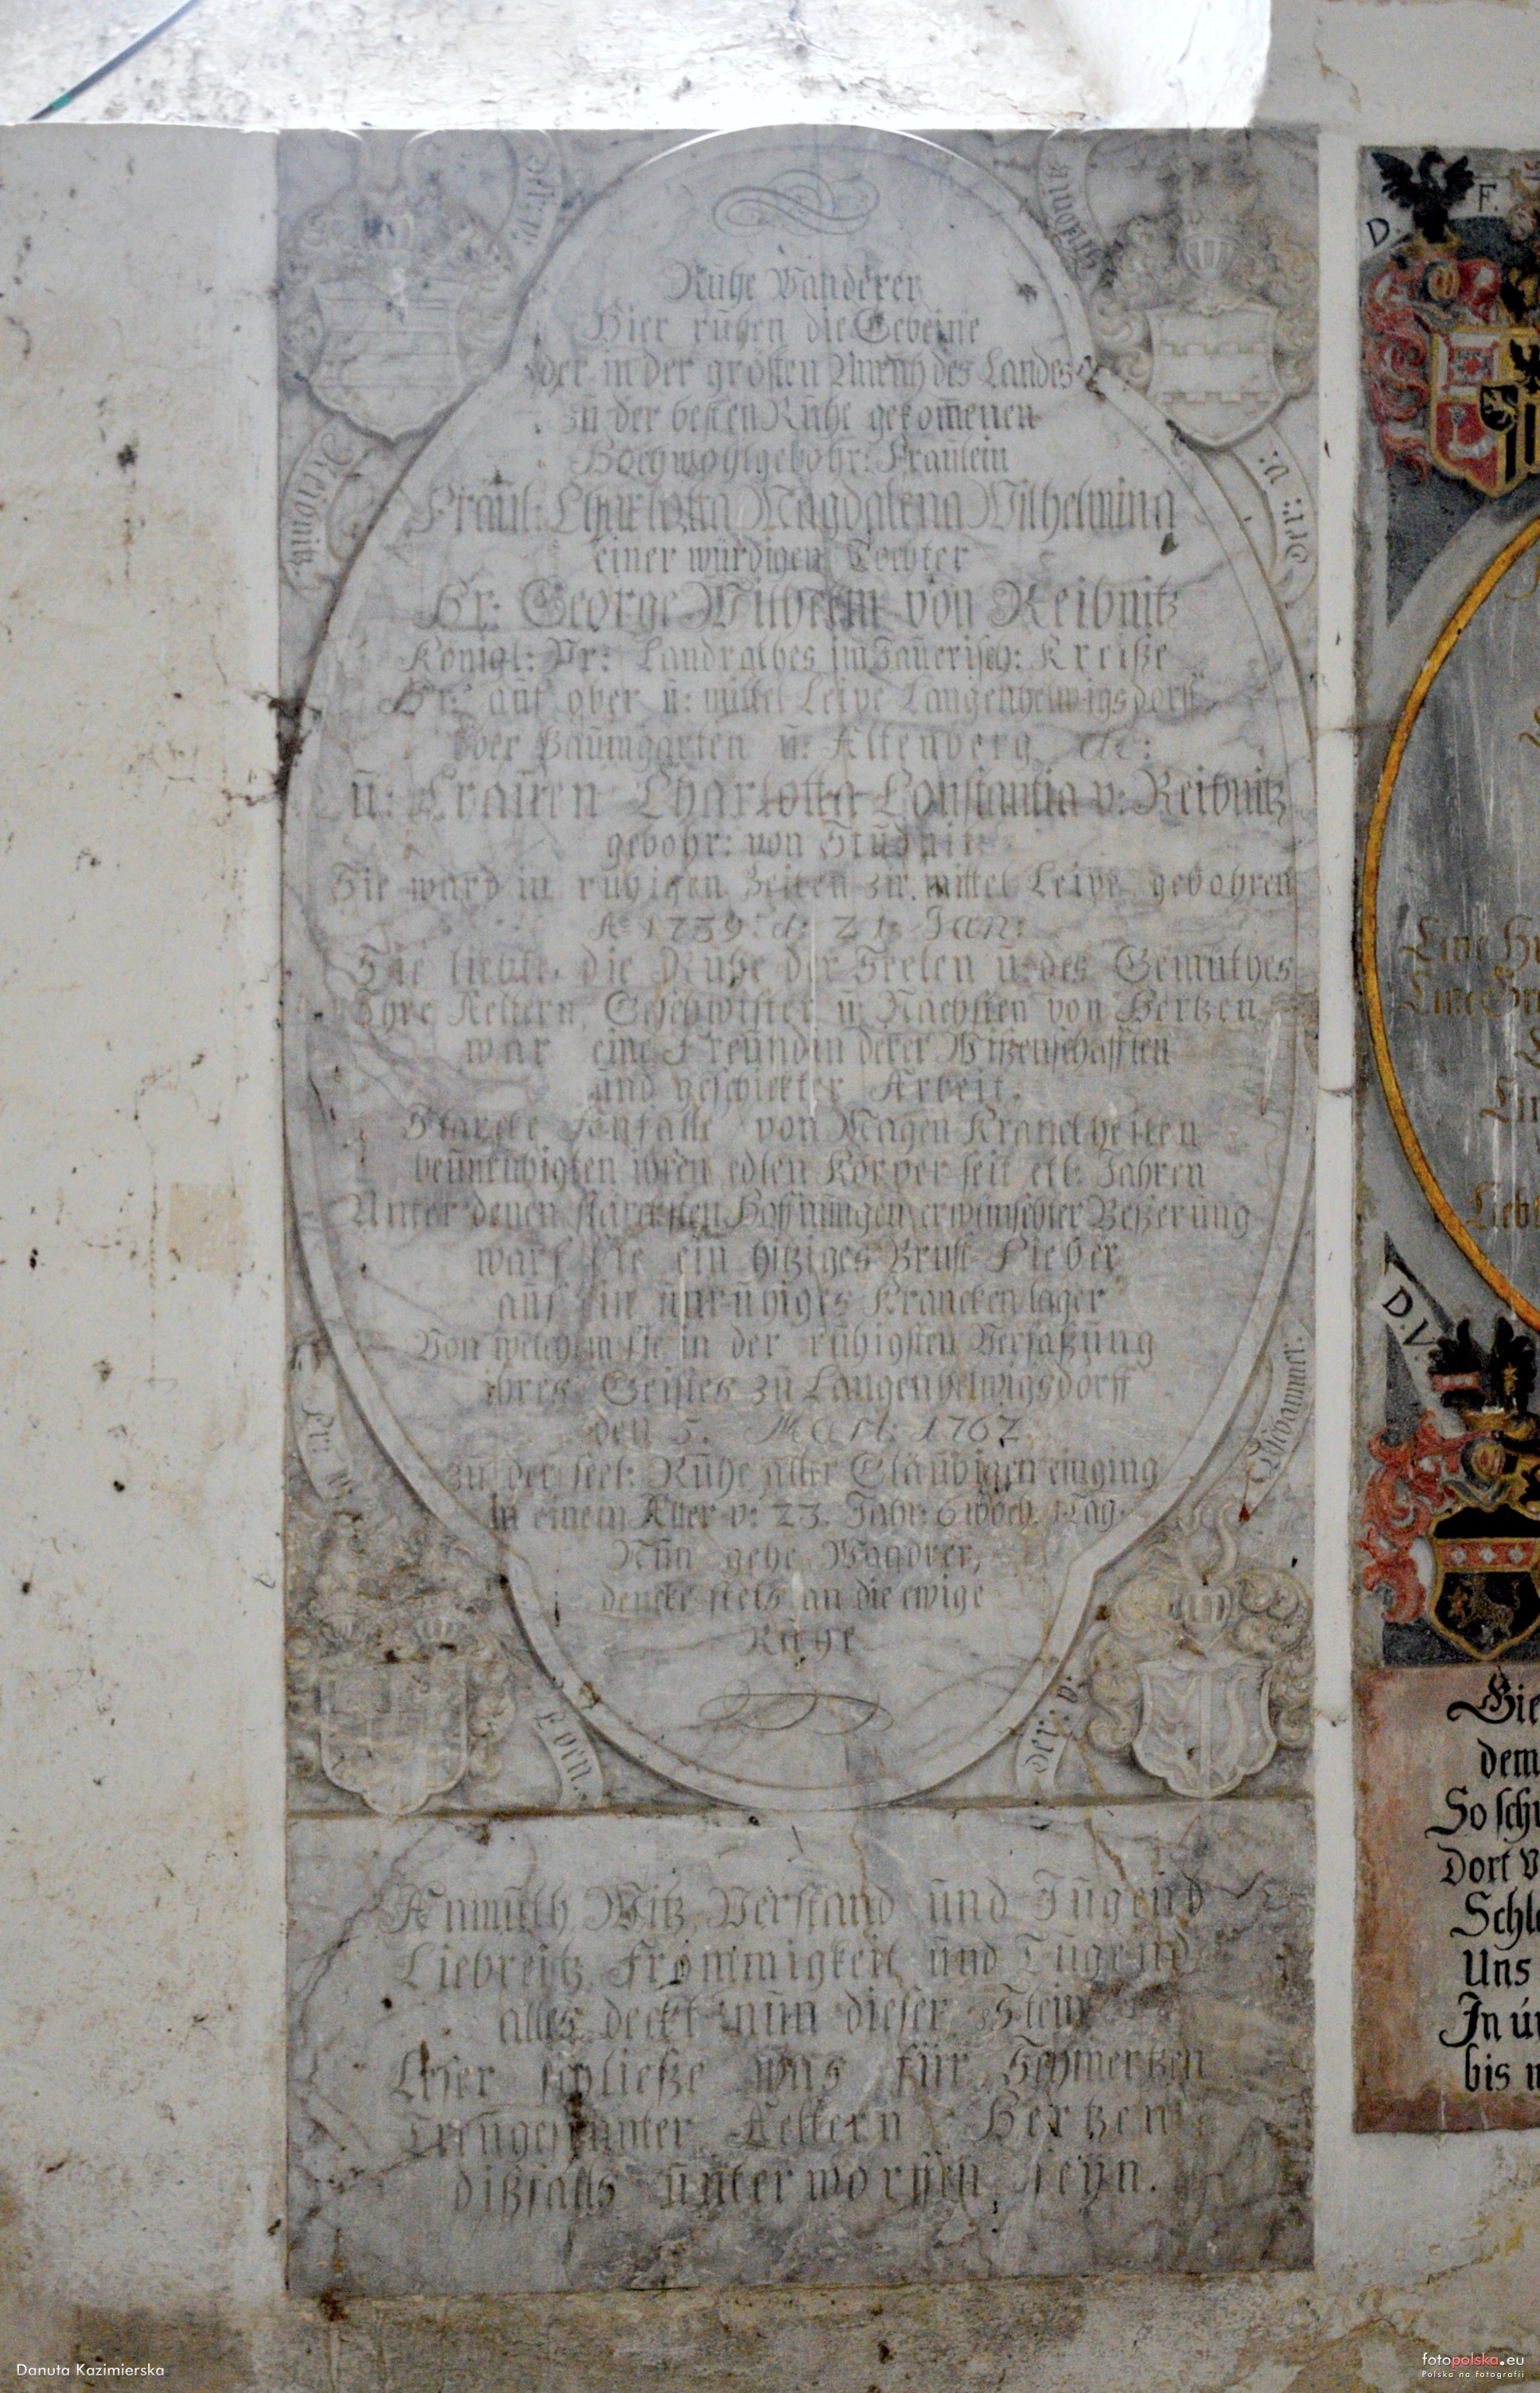 Fit: v:
Reibnitz.
Stubnitz
Frr: v:
Ruhe Wanderer
Hier ruhen die Gebeine
der in der grösten Unruh des Landes
zu der besten Ruhe gekom̄enen
Hochwohlgebohr: Fraulein
Fräul: Charlotta Magdalena Wilhelmina
einer würdigen Tochter
Hr: George Wilhelm von Reibnitz
Königl: Pr: Landrathes im Jauerisch: Kreiße
Hr: auf ober u: mittel Leipe Langenhelwigsdorff
ober Baumgarten u: Altenberg etc:
u: Frauen Charlotta Constantia v: Reibnitz
gebohr: von Studnitz
Sie ward in ruhigen Zeiten zu mittel Leipe gebohren
A 1739 d: 21 Jan:
Sie liebte die Ruhe der Seelen u: des Gemuthes
Ihre Aeltern, Geschwister u: Nachsten von Hertzen
war eine Freundin derer Wißenschafften
und geschickter Arbeit.
Starcke Anfälle von Magen Kranckheiten
beunruhigten ihren edlen Körper seit etl: Jahren
Unter denen starcksten Hoffnungen erwünschter Beßerung
warf sie ein hitziges Brust Fieber
auf ein unruhiges Krancken lager
Von welchem sie in der ruhigsten Verfaßung
ihres Geistes zu Langenhelwigsdorff
den 5. Mart: 1762
zu der seel: Ruhe aller Glaubigen einging
In einem Alter v: 23. Jahr: 6 woch. 1 Tag.
Nun gehe Wandrer,
dencke stets an die ewige
Ruhe
Eben.
der: v:
Niebammer.
Anmuth, Witz, Verstand und Jugend
Liebreitz, Frömmigkeit und Tugend
alles deckt nun dieser Stein
Leser schließe was für Schmertzen
Treugesinnter Aeltern Hertzen
dißfalls unterworffen seyn.
D. F.
D. V.
Eine
Eine
Lieb
Hie
dem
So sch
Dort V
Schl
Uns
In
bis
Danuta Kazimierska
fotopolska.eu
Polska na fotografii